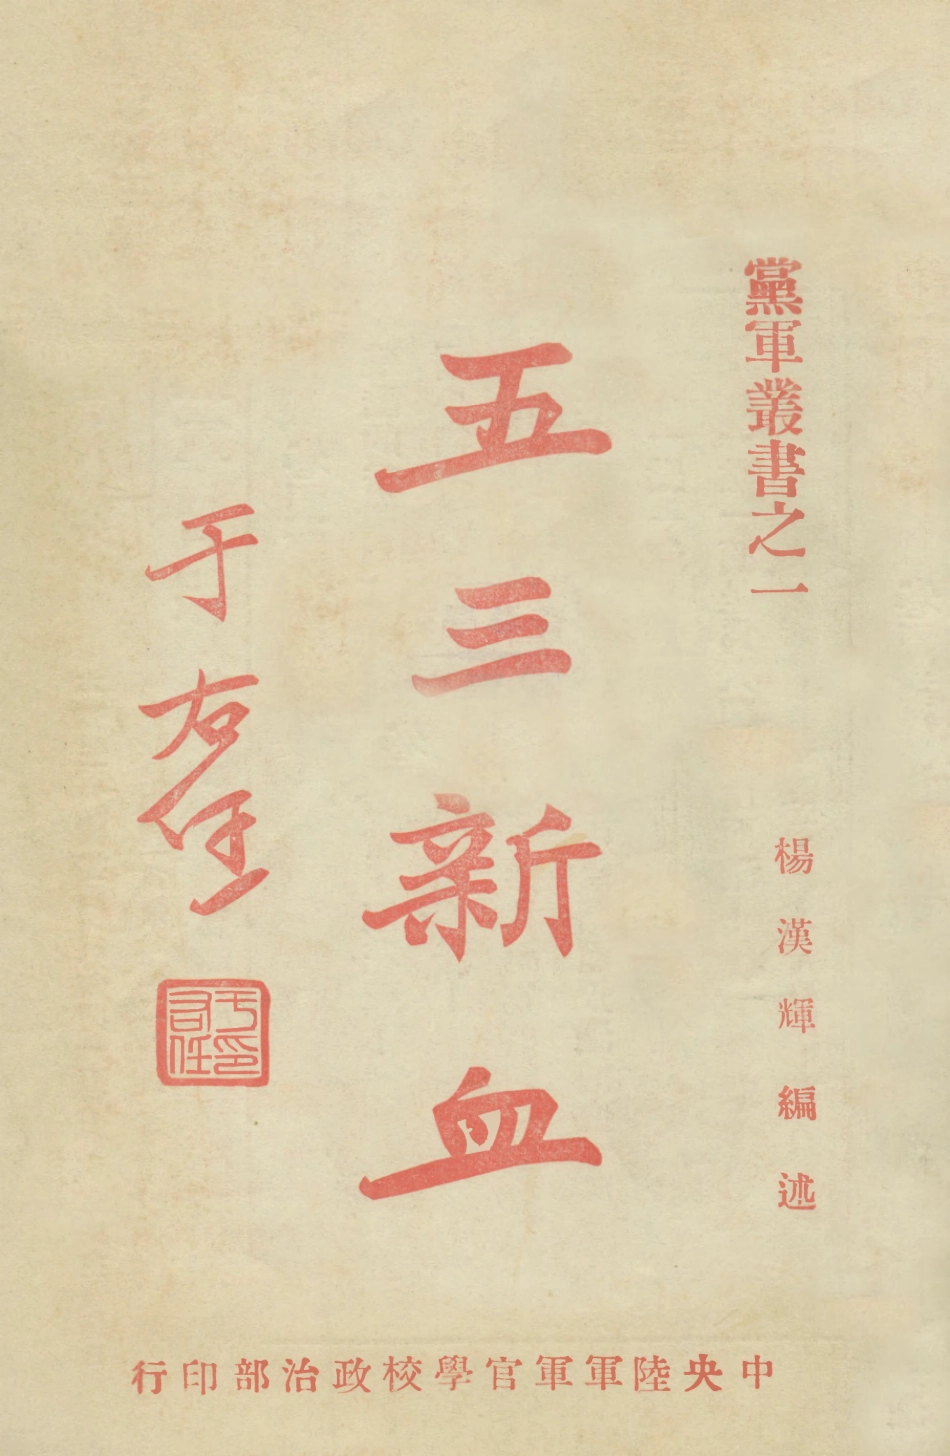 黨軍叢書之一
楊漢輝編述
五三新血
于右任
于右任印
中央陸軍軍官學校政治部印行